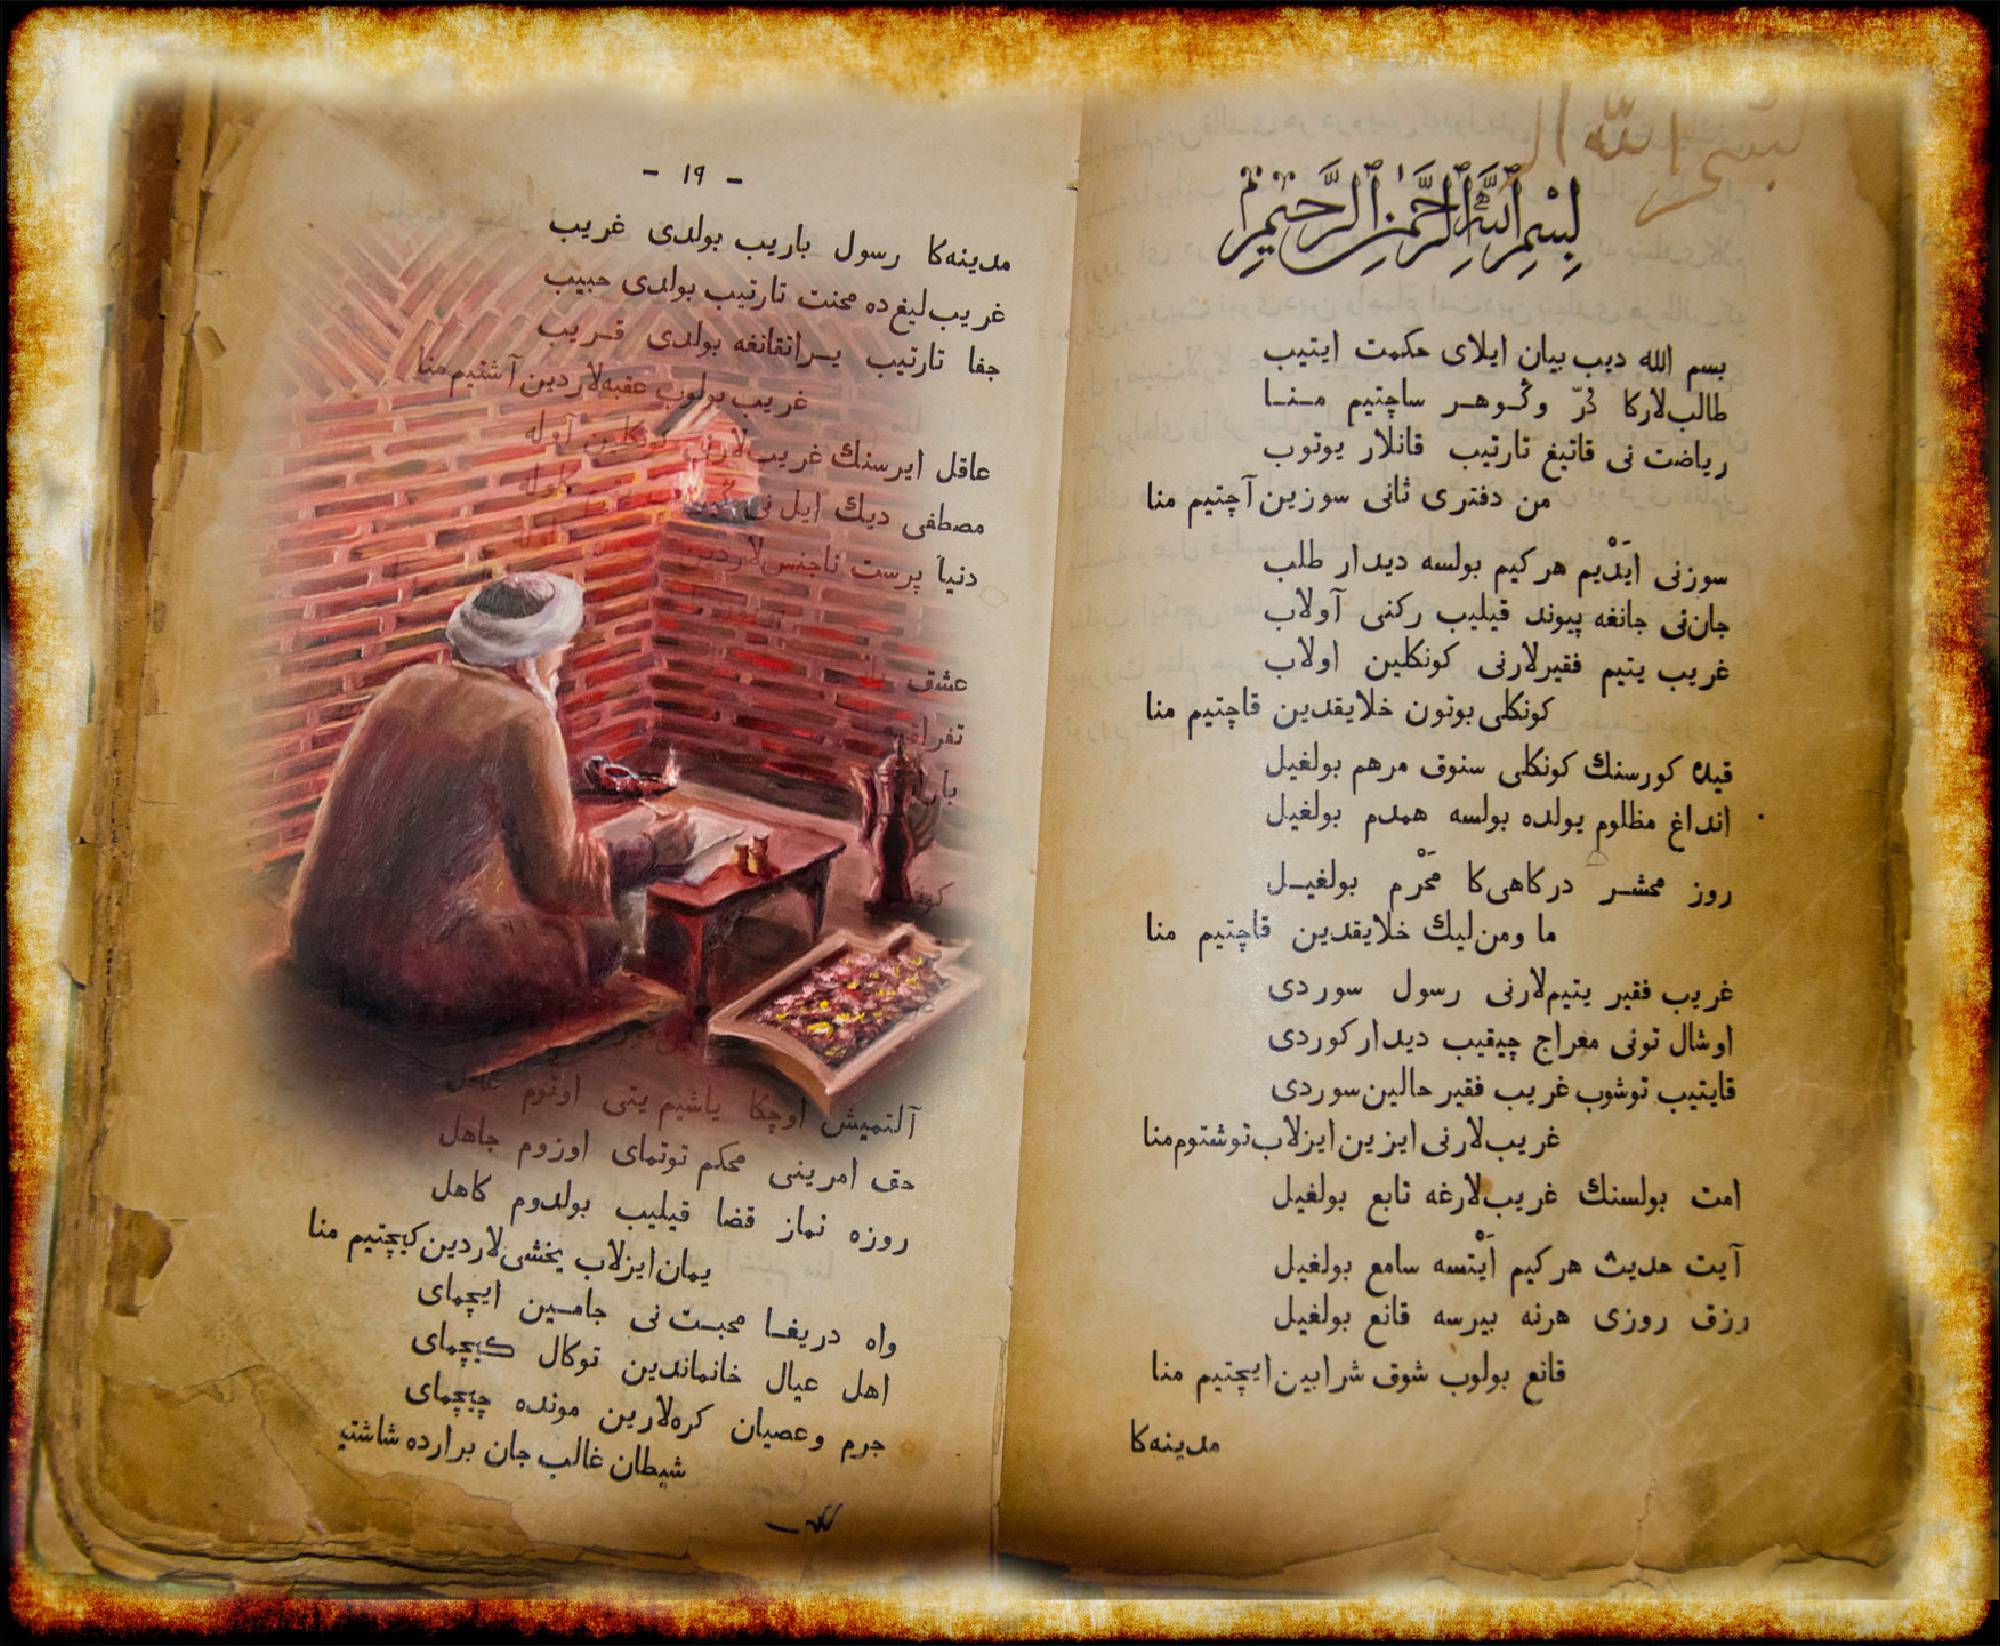 بِسْمِ ٱللَّهِ ٱلرَّحْمَٰنِ ٱلرَّحِيمِ
بسم الله ديب بيان ايلاى حكمت ايتيب
طالب‌لاركا دُرّ وگوهر ساچتيم منا
رياضت نى قاتيغ تارتيب قانلار يوتوب
من دفترى ثانى سوزين آچتيم منا
سوزنى ايَدْيم هركيم بولسه ديدار طلب
جان‌نى جانغه پيوند قيليب ركنى آولاب
غريب يتيم فقيرلارنى كونكلين اولاب
كونكلى بوتون خلايقدين قاچتيم منا
قيده كورسنك كونكلى سنوق مرهم بولغيل
انداغ مظلوم يولده بولسه همدم بولغيل
روز محشر دركاهى‌كا مَحْرم بولغيل
ما ومن‌ليك خلايقدين قاچتيم منا
غريب فقير يتيم‌لارنى رسول سوردى
اوشال تونى معراج چيقيب ديدار كوردى
قايتيب توشوب غريب فقير حالين سوردى
غريب‌لارنى ايزين ايزلاب توشتوم منا
امت بولسنك غريب‌لارغه تابع بولغيل
آيت حديث هركيم اَيْتسه سامع بولغيل
رزق روزى هرنه بيرسه قانع بولغيل
قانع بولوب شوق شرابين ايچتيم منا
مدينه‌كا
- ١٩ -
مدينه‌كا رسول باريب بولدى غريب
غريب‌ليغ‌ده محنت تارتيب بولدى حبيب
جفا تارتيب يراتقانغه بولدى قريب
غريب بولوب عقبه‌لاردين آشتيم منا
عاقل ايرسنك غريب‌لارنى كونكلين آوله
مصطفى ديك ايل نى
دنيا پرست ناجنس‌لاردين
عشق
آلتميش اوچكا ياشيم يتى اوتوم غافل
حق امرينى محكم توتماى اوزوم جاهل
روزه نماز قضا قيليب بولدوم كاهل
يمان ايزلاب يخشى‌لاردين كيچتيم منا
واه دريغا محبت نى جامين ايچماى
اهل عيال خانماندين توكال كيچماى
جرم وعصيان كره‌لارين مونده چيچماى
شيطان غالب جان برارده شاشتيم